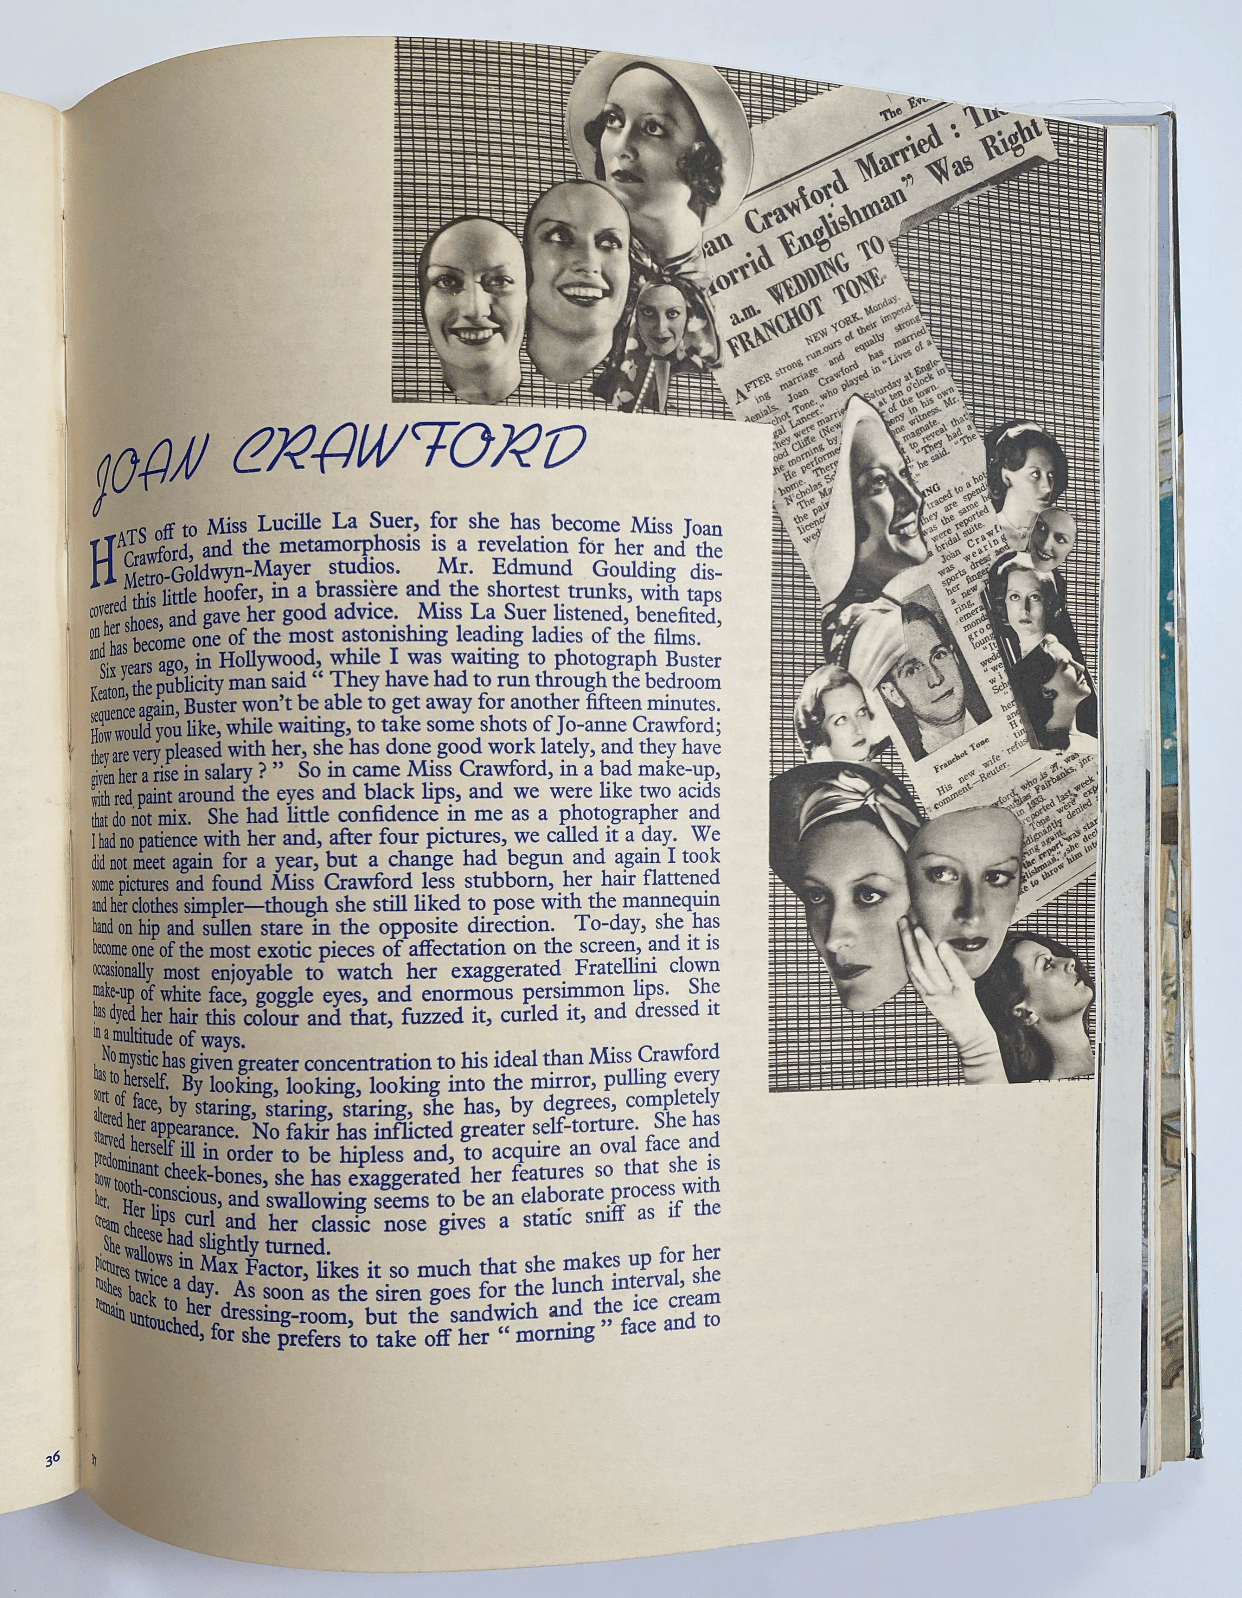 The
an Crawford Married :
orrid Englishman" Was Right
a.m. WEDDING TO
FRANCHOT TONE
NEW YORK, Monday.
AFTER strong rumours of their impend-
ing marriage and equally strong
denials, Joan Crawford has married
chot Tone, who played in "Lives of a
gal Lancer."
they were married
ood Cliffe (New
he morning by
He performed
home. There
Nicholas Sc
The Ma
the pair
licenc
wed
Saturday at Engle-
at ten o'clock in
of the town.
ony in his own
one witness, Mr.
magnate.
to reveal that
"They had a
he said. "The
ING
traced to a hot
they are spend
was the same h
were reported
a bridal suite.
Joan Crawf
was wearing
sports dress and
her finger
a new
ring,
emera
mond
groo
loung
"It
wedd
"we
wi
Sch
her
and
H
tin
refus
Franchot Tone
His new wife
comment.—Reuter.
wford, who is 27, was
ouglas Fairbanks, jnr.
in 1933.
reported last week
Tone were exp
dignantly denied
ing again.
the report was star
glishman," she decl
e to throw him int
JOAN CRAWFORD
HATS off to Miss Lucille La Suer, for she has become Miss Joan
Crawford, and the metamorphosis is a revelation for her and the
Metro-Goldwyn-Mayer studios. Mr. Edmund Goulding dis-
covered this little hoofer, in a brassière and the shortest trunks, with taps
on her shoes, and gave her good advice. Miss La Suer listened, benefited,
and has become one of the most astonishing leading ladies of the films.
Six years ago, in Hollywood, while I was waiting to photograph Buster
Keaton, the publicity man said " They have had to run through the bedroom
sequence again, Buster won't be able to get away for another fifteen minutes.
How would you like, while waiting, to take some shots of Jo-anne Crawford;
they are very pleased with her, she has done good work lately, and they have
given her a rise in salary ? " So in came Miss Crawford, in a bad make-up,
with red paint around the eyes and black lips, and we were like two acids
that do not mix. She had little confidence in me as a photographer and
I had no patience with her and, after four pictures, we called it a day. We
did not meet again for a year, but a change had begun and again I took
some pictures and found Miss Crawford less stubborn, her hair flattened
and her clothes simpler—though she still liked to pose with the mannequin
hand on hip and sullen stare in the opposite direction. To-day, she has
become one of the most exotic pieces of affectation on the screen, and it is
occasionally most enjoyable to watch her exaggerated Fratellini clown
make-up of white face, goggle eyes, and enormous persimmon lips. She
has dyed her hair this colour and that, fuzzed it, curled it, and dressed it
in a multitude of ways.
No mystic has given greater concentration to his ideal than Miss Crawford
has to herself. By looking, looking, looking into the mirror, pulling every
sort of face, by staring, staring, staring, she has, by degrees, completely
altered her appearance. No fakir has inflicted greater self-torture. She has
starved herself ill in order to be hipless and, to acquire an oval face and
predominant cheek-bones, she has exaggerated her features so that she is
now tooth-conscious, and swallowing seems to be an elaborate process with
her. Her lips curl and her classic nose gives a static sniff as if the
cream cheese had slightly turned.
She wallows in Max Factor, likes it so much that she makes up for her
pictures twice a day. As soon as the siren goes for the lunch interval, she
rushes back to her dressing-room, but the sandwich and the ice cream
remain untouched, for she prefers to take off her " morning " face and to
36
37